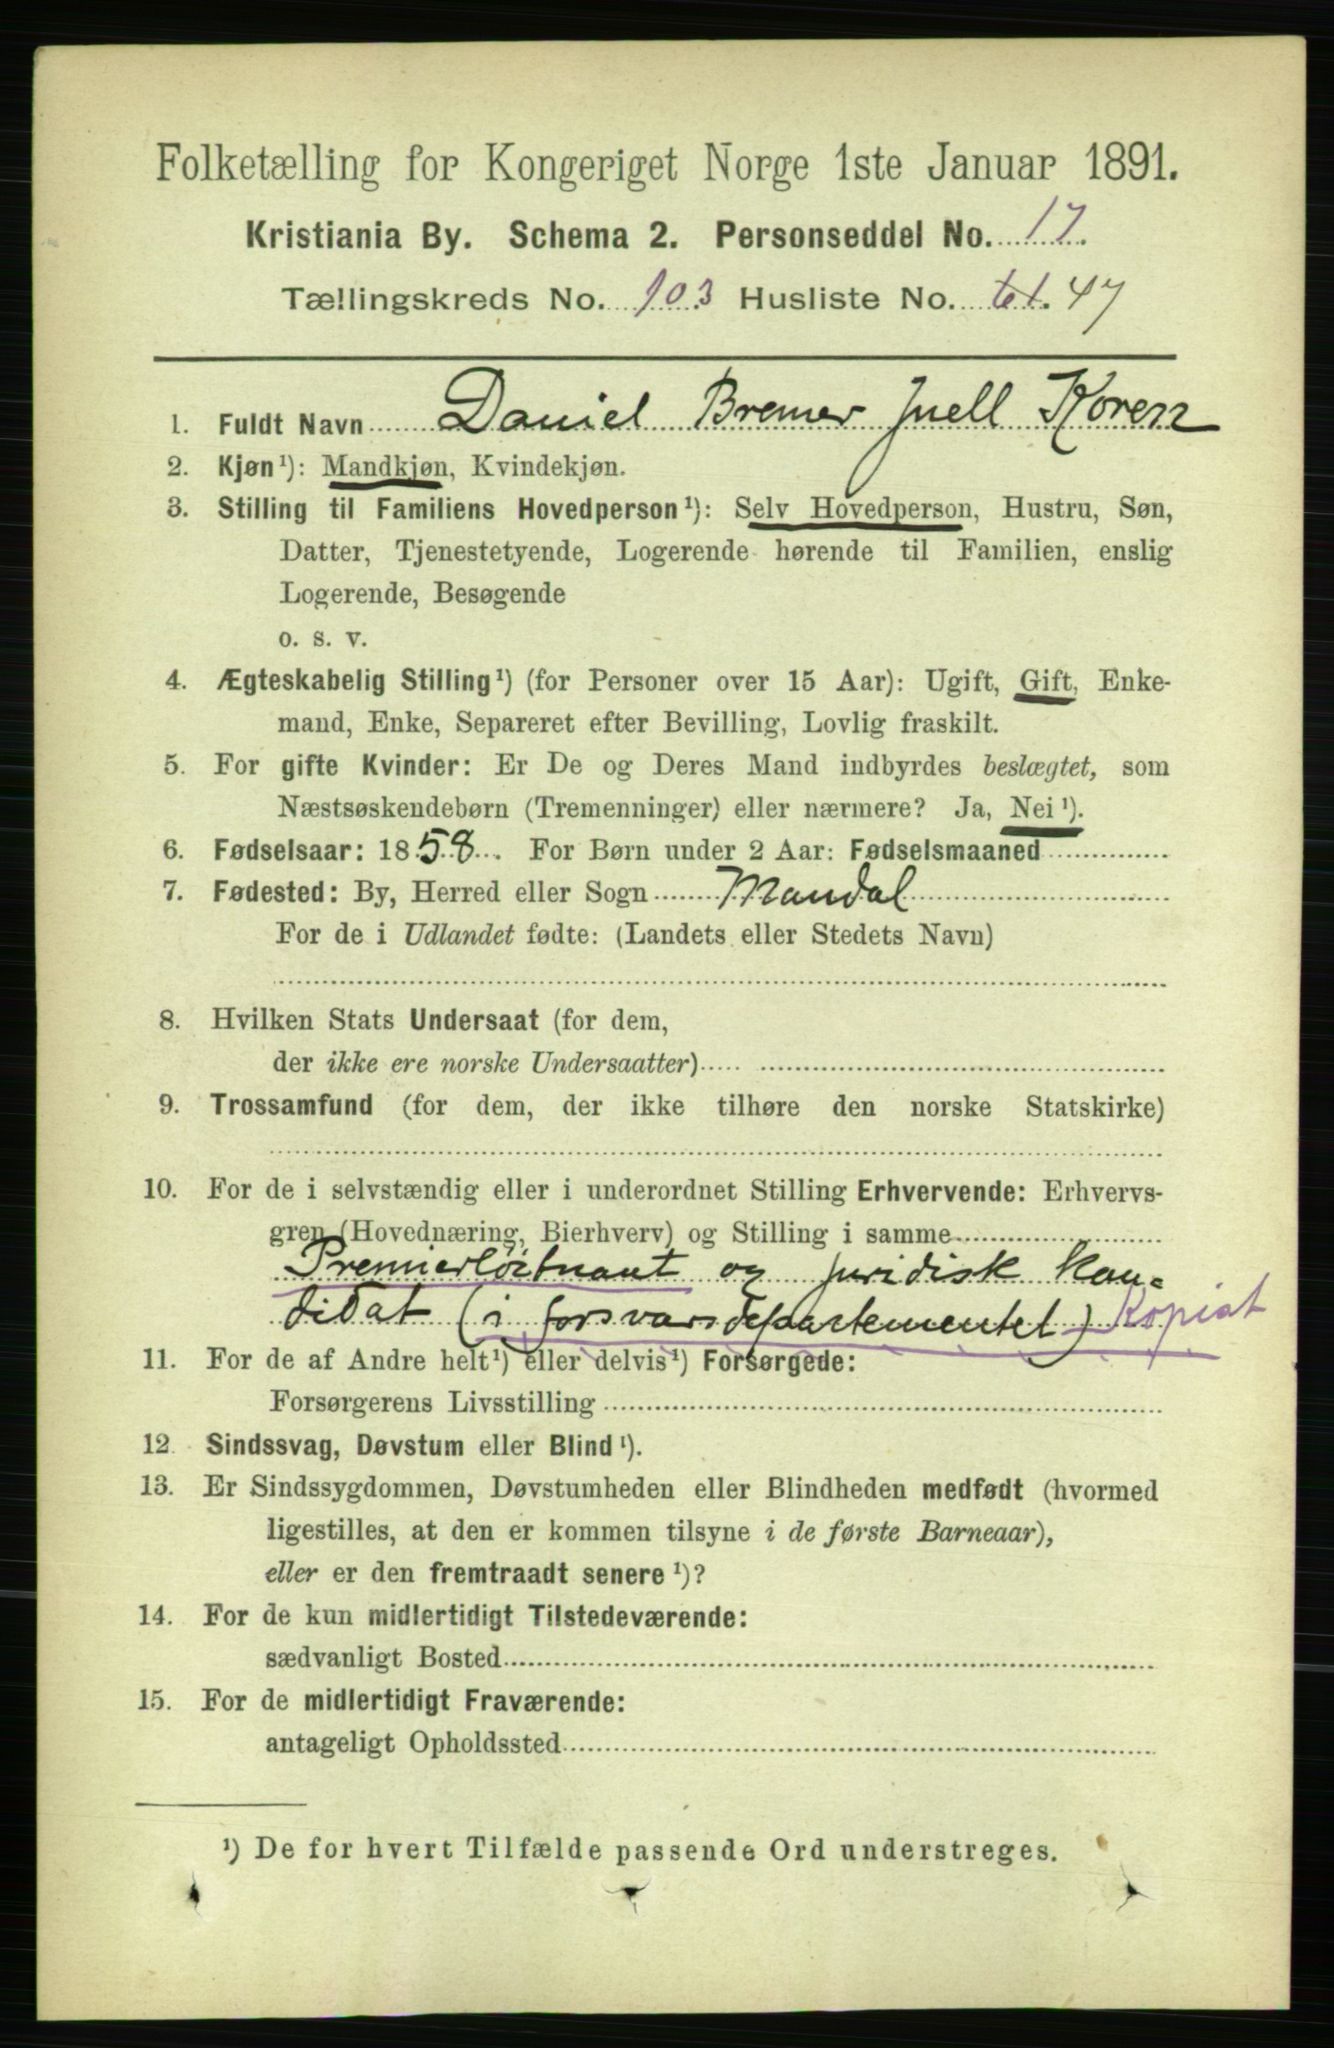 Folketælling for Kongeriget Norge 1ste Januar 1891.
Kristiania By. Schema 2. Personseddel No. 17.
Tællingskreds No. 103 Husliste No. 47
1. Fuldt Navn Daniel Bremer Juell Koren
2. Kjøn¹): Mandkjøn, Kvindekjøn.
3. Stilling til Familiens Hovedperson¹): Selv Hovedperson, Hustru, Søn,
Datter, Tjenestetyende, Logerende hørende til Familien, enslig
Logerende, Besøgende
o. s. v.
4. Ægteskabelig Stilling¹) (for Personer over 15 Aar): Ugift, Gift, Enke-
mand, Enke, Separeret efter Bevilling, Lovlig fraskilt.
5. For gifte Kvinder: Er De og Deres Mand indbyrdes beslægtet, som
Næstsøskendebørn (Tremenninger) eller nærmere? Ja, Nei¹).
6. Fødselsaar: 1858. For Børn under 2 Aar: Fødselsmaaned
7. Fødested: By, Herred eller Sogn Mandal
For de i Udlandet fødte: (Landets eller Stedets Navn)
8. Hvilken Stats Undersaat (for dem,
der ikke ere norske Undersaatter)
9. Trossamfund (for dem, der ikke tilhøre den norske Statskirke)
10. For de i selvstændig eller i underordnet Stilling Erhvervende: Erhvervs-
gren (Hovednæring, Bierhverv) og Stilling i samme
Premierløitnant og juridisk Kan-
didat (i forsvarsdepartementet) Kopist
11. For de af Andre helt¹) eller delvis¹) Forsørgede:
Forsørgerens Livsstilling
12 Sindssvag, Døvstum eller Blind¹).
13. Er Sindssygdommen, Døvstumheden eller Blindheden medfødt (hvormed
ligestilles, at den er kommen tilsyne i de første Barneaar),
eller er den fremtraadt senere¹)?
14. For de kun midlertidigt Tilstedeværende:
sædvanligt Bosted
15. For de midlertidigt Fraværende:
antageligt Opholdssted
¹) De for hvert Tilfælde passende Ord understreges.